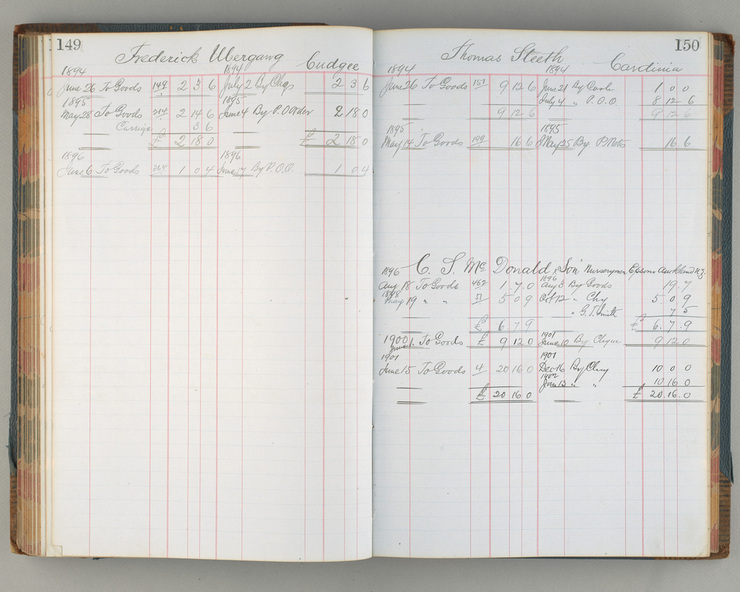 149
Frederick Ubergang Cudgee
1894 1894
June 26 To Goods 149 2 3 6 July 2 By Chqs 2 3 6
1895 1895
May 28 To Goods 2 14 6 June 4 By P.O Order 2 18 0
Carriage 3 6
£ 2 18 0 £ 2 18 0
1896 1896
June 6 To Goods 1 0 4 June 17 By P.O.O. 1 0 4
150
Thomas Steeth Cardinia
1894 1894
June 26 To Goods 151 9 12 6 June 21 By Cash 1 0 0
July 4 " P.O.O 8 12 6
9 12 6 9 12 6
1895 1895
May 14 To Goods 199 16 6 May 25 By P. Notes 16 6
1896 C. S. Mc Donald & Son Nurserymen Epsom Auckland N.Z.
Aug 18 To Goods 462 1 7 0 1896 Aug 3 By Goods 19 7
1898 May 19 " " 11 5 0 9 Oct 12 " Chq 5 0 9
" G.T. Smith 7 5
£ 6 7 9 £ 6 7 9
1900 June 1. To Goods £ 9 12 0 1901 June 10 By Cheque 9 12 0
1901 1901
June 15 To Goods 4 20 16 0 Dec 16 By Chq 10 0 0
1902 " " 10 16 0
£ 20 16 0 £ 20 16 0